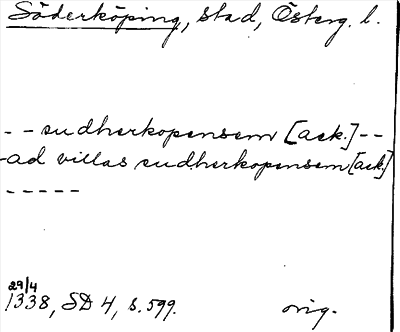 Söderköping, stad, Österg. l.
- - sudherkopensem [ack.] - -
- ad villas sudherkopensem [ack.]
- - - - -
29/4
1338, SD 4, s. 599. orig.